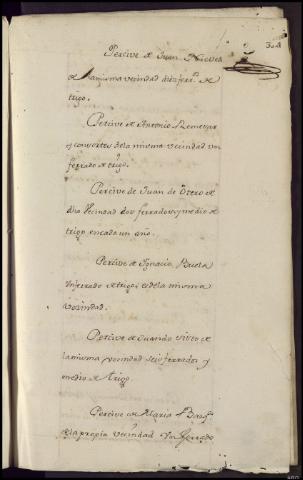 Percive de Juan Nieves
de la misma vecindad diez ferr.s de
trigo.
Percive de Antonio Remexar
y consortes de la misma vecindad un
ferrado de trigo.
Percive de Juan de Otero de
dha Vecindad dos ferrados y medio de
trigo en cada un año.
Percive de Ygnacio Buela
Un ferrado de trigo, es de la misma
vecindad.
Percive de
la misma vecindad seis ferrados y
medio de trigo.
Percive de Maria
de la propia vecindad Un ferrado